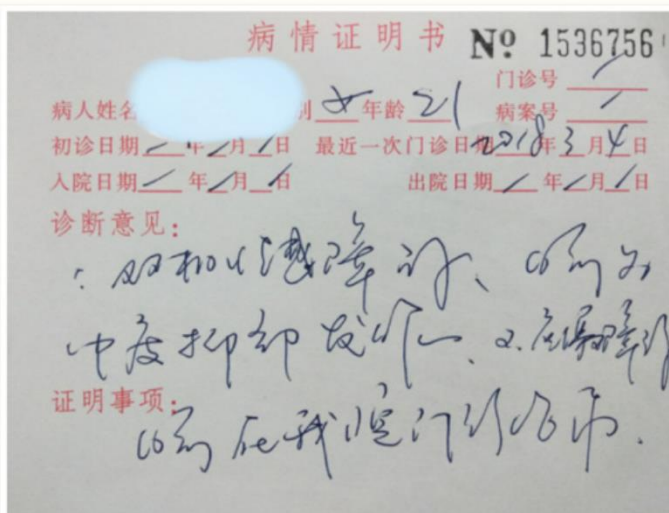 病情证明书 Nº 1536756
门诊号 /
病人姓名 别 女 年龄 21 病案号 /
初诊日期 / 年 / 月 / 日 最近一次门诊日期 2018 3 月 4 日
入院日期 / 年 / 月 / 日 出院日期 / 年 / 月 / 日
诊断意见:
双相情感障碍、目前为
中度抑郁发作 2.
证明事项:
目前在我院门诊治疗.